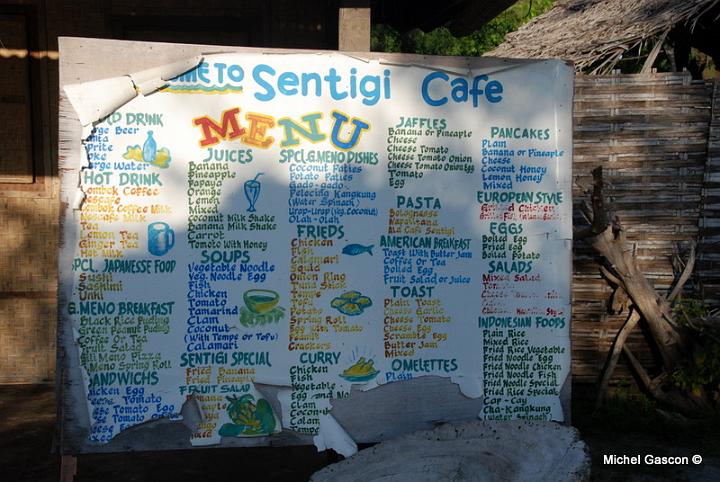 ME TO Sentigi Cafe
MENU
LD DRINK
arge Beer
anta
prite
oke
arge Water
HOT DRINK
ombok Coffee
escafe
ombok Coffee Milk
Nescafe Milk
Tea
Lemon Tea
Ginger Tea
Hot Milk
SPCL. JAPANESSE FOOD
Sushi
Sashimi
G.MENO BREAKFAST
Black Rice Pudding
Green Peanut Pudding
Coffee Or Tea
Fruit Salad
Gili Meno Pizza
Meno Spring Roll
ANDWICHS
hicken Egg
heese Tomato
ese Tomato Onion
ese Tomato Egg
JUICES
Banana
Pineapple
Papaya
Orange
Lemon
Mixed
Coconut Milk Shake
Banana Milk Shake
Carrot
Tomato With Honey
SOUPS
Vegetable Noodle
Veg. Noodle Egg
Fish
Chicken
Tomato
Tamarind
Clam
Coconut
(With Tempe Or Tofu)
Calamari
SENTIGI SPECIAL
Fried Banana
Fried Pineapple
FRUIT SALAD
SPCL.G.MENO DISHES
Coconut Patties
Potato Patties
Gado-gado
Pelecing Kangkung
(Water Spinach)
Urap-Urap (Veg.Coconut)
Olah-Olah
FRIEDS
Chicken
Fish
Calamari
Squid
Onion Ring
Tuna Stick
Tempe
Tofu
Potato
Spring Roll
Egg With Tomato
Peanut
Crackers
CURRY
Chicken
Fish
Vegetable
Egg
Clam
Coconu
Tempe
JAFFLES
Banana or Pineapple
Cheese
Cheese Tomato
Cheese Tomato Onion
Cheese Tomato Onion Egg
Tomato
Egg
PASTA
Bolognesse
Napolitana
Ala Cafe Sentigi
AMERICAN BREAKFAST
Toast With Butter Jam
Coffee Or Tea
Boiled Egg
Fruit Salad or Juice
TOAST
Plain Toast
Cheese Garlic
Cheese Tomato
Cheese Egg
Scramble Egg
Butter Jam
Mixed
OMELETTES
Plain
PANCAKES
Plain
Banana or Pineapple
Cheese
Coconut Honey
Lemon Honey
Mixed
EUROPEAN STYLE
Grilled Chicken
EGGS
Boiled Egg
Fried Egg
Boiled Potato
SALADS
Mixed Salad
INDONESIAN FOODS
Plain Rice
Mixed Rice
Fried Rice Vegetable
Fried Noodle Egg
Fried Noodle Chicken
Fried Noodle Fish
Fried Noodle Special
Fried Rice Special
Cap-Cay
Cha-Kangkung
(Water Spinach)
Michel Gascon ©